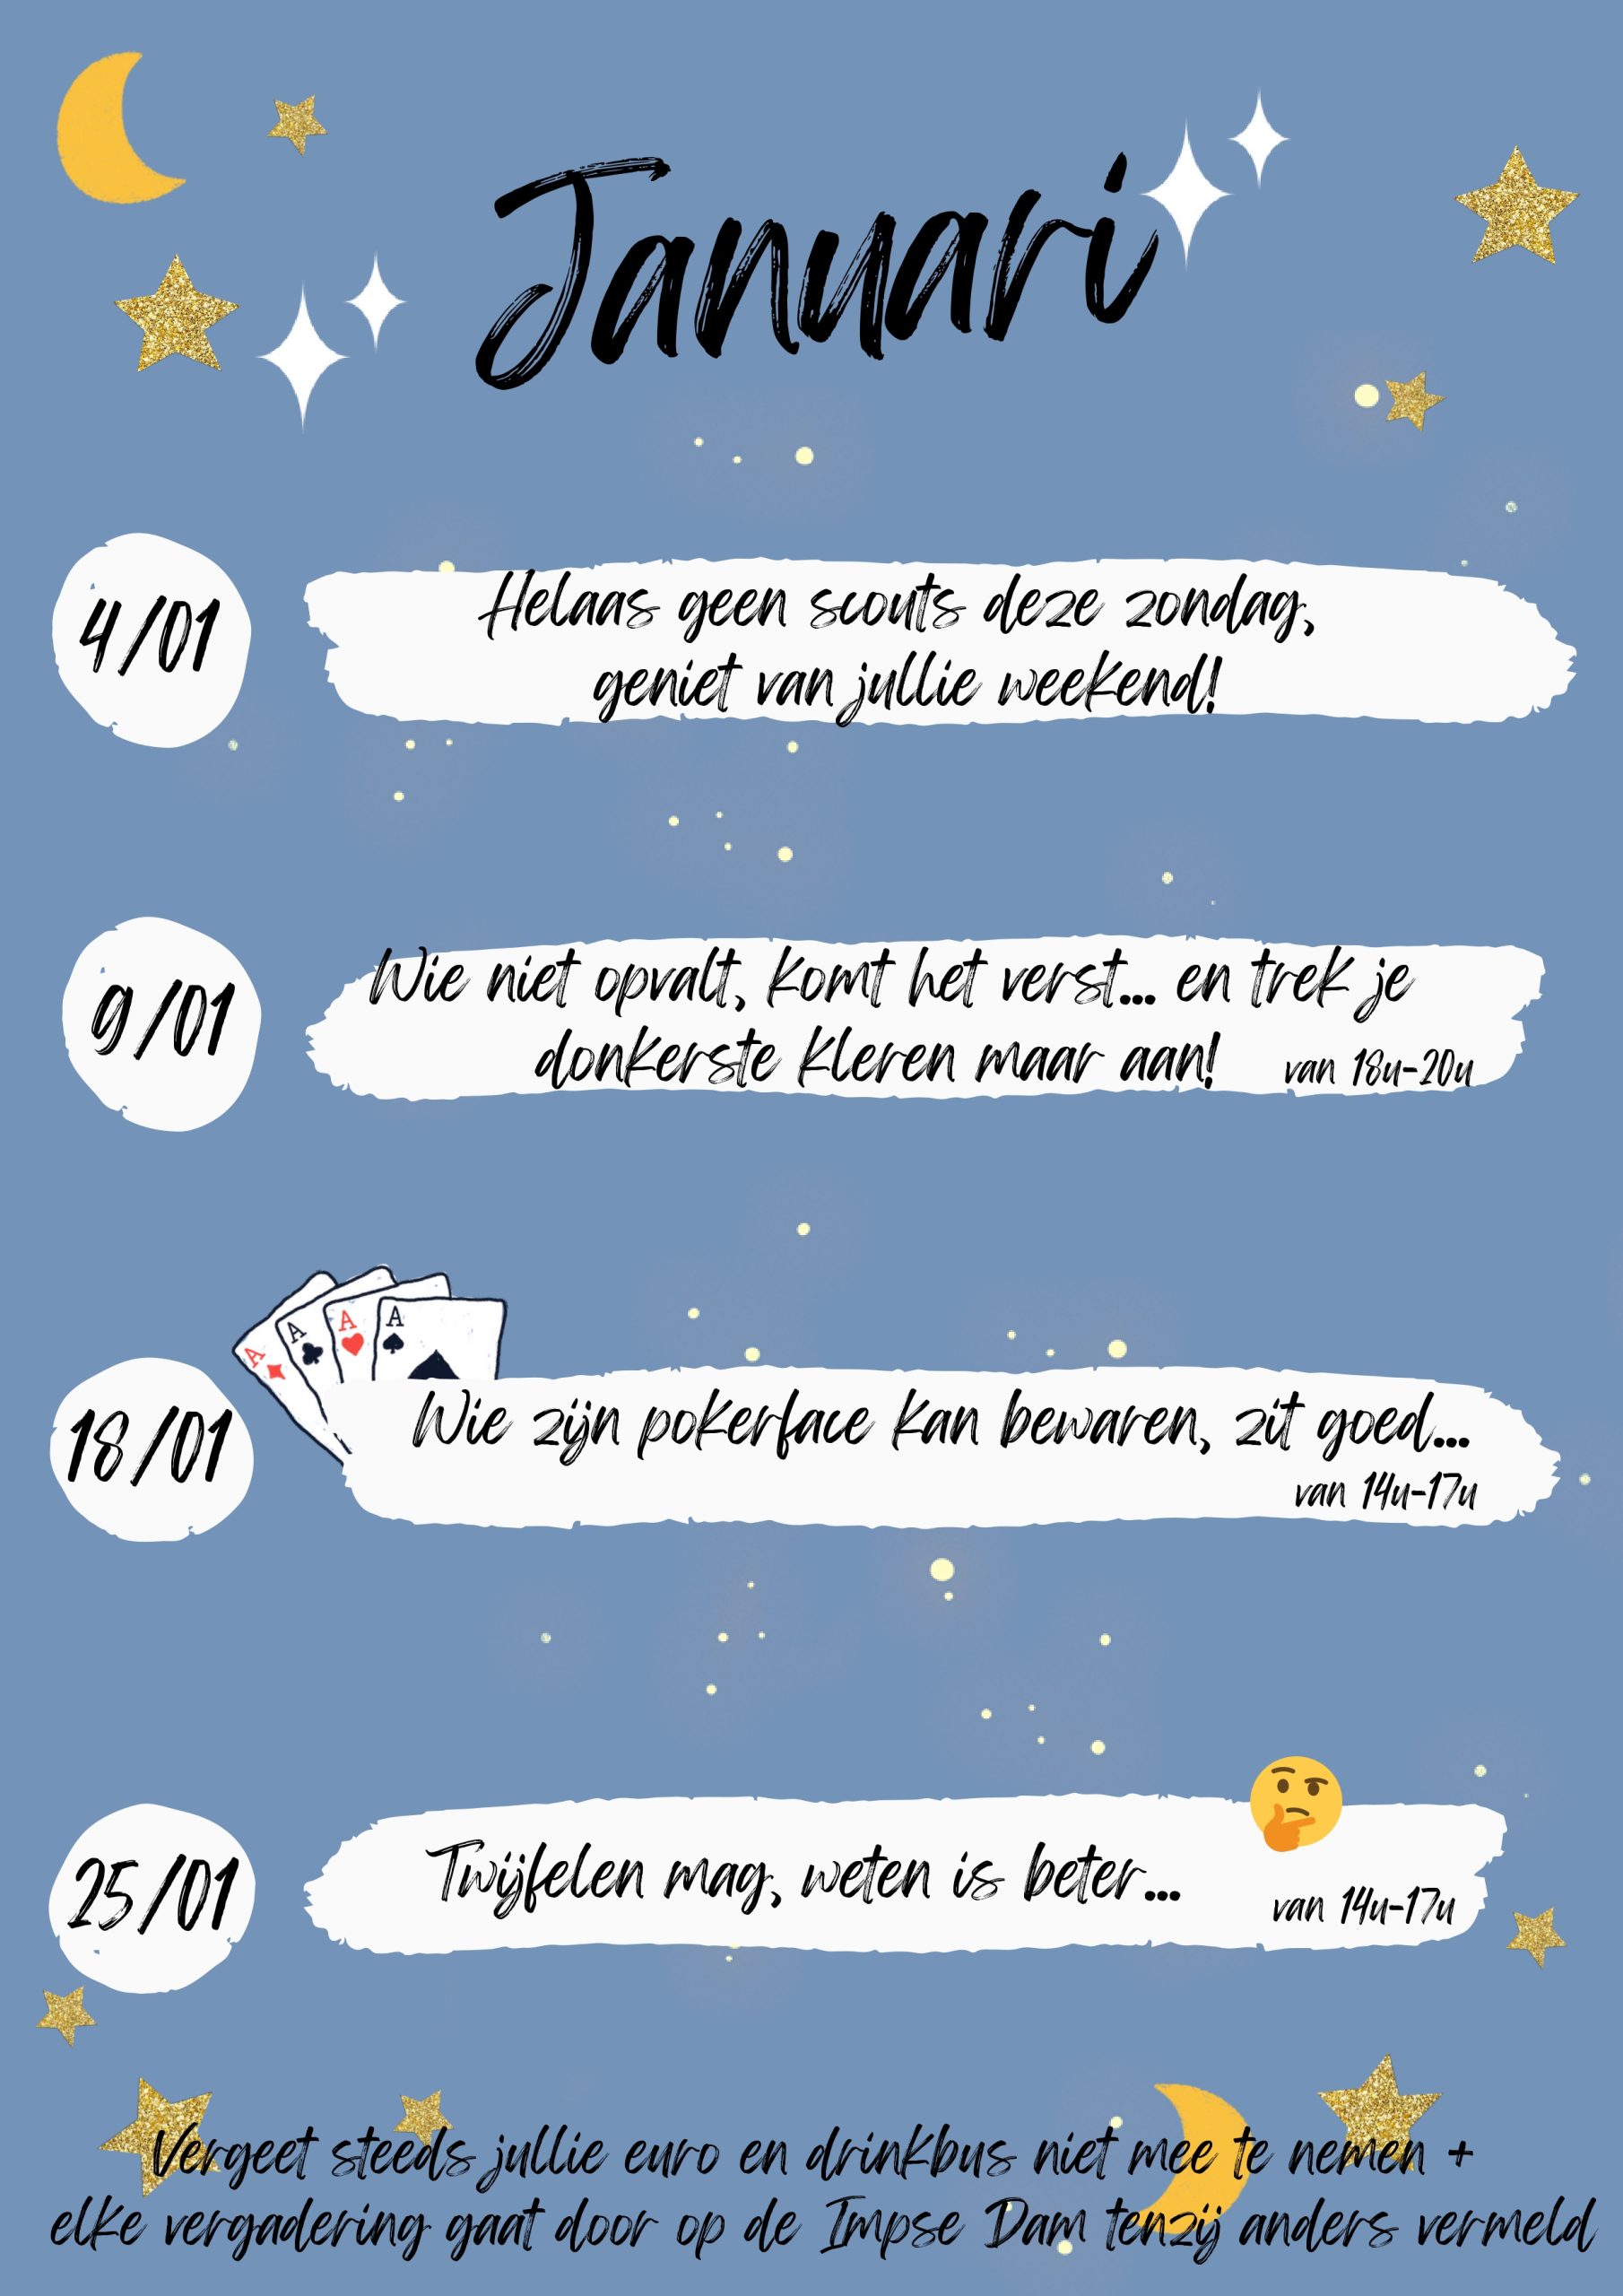 Januari
4/01
Helaas geen scouts deze zondag,
geniet van jullie weekend!
9/01
Wie niet opvalt, komt het verst... en trek je
donkerste kleren maar aan! van 18u-20u
A A A A
18/01
Wie zijn pokerface kan bewaren, zit goed...
van 14u-17u
25/01
Twijfelen mag, weten is beter...
van 14u-17u
Vergeet steeds jullie euro en drinkbus niet mee te nemen +
elke vergadering gaat door op de Impse Dam tenzij anders vermeld